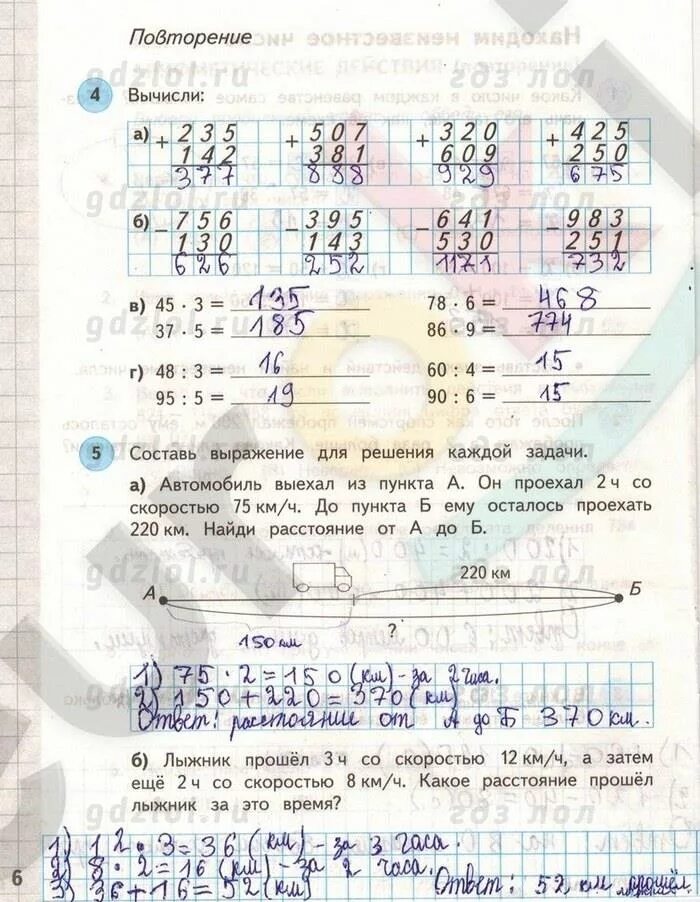 Повторение
gdzlol.ru гдз лол
4 Вычисли:
а) + 235 + 507 + 320 + 425
142 381 609 250
377 888 929 675
gdzlol.ru гдз лол
б) − 756 − 395 − 641 − 983
130 143 530 251
626 252 1171 732
в) 45 · 3 = 135 78 · 6 = 468
37 · 5 = 185 86 · 9 = 774
gdzlol.ru гдз лол
г) 48 : 3 = 16 60 : 4 = 15
95 : 5 = 19 90 : 6 = 15
5 Составь выражение для решения каждой задачи.
а) Автомобиль выехал из пункта А. Он проехал 2 ч со
скоростью 75 км/ч. До пункта Б ему осталось проехать
220 км. Найди расстояние от А до Б.
gdzlol.ru гдз лол
220 км
А Б
?
150 км
1) 75 · 2 = 150 (км) - за 2 часа.
2) 150 + 220 = 370 (км)
Ответ: расстояние от А до Б 370 км.
б) Лыжник прошёл 3 ч со скоростью 12 км/ч, а затем
ещё 2 ч со скоростью 8 км/ч. Какое расстояние прошёл
лыжник за это время?
1) 12 · 3 = 36 (км) - за 3 часа.
2) 8 · 2 = 16 (км) - за 2 часа.
3) 36 + 16 = 52 (км) Ответ: 52 км прошёл
6